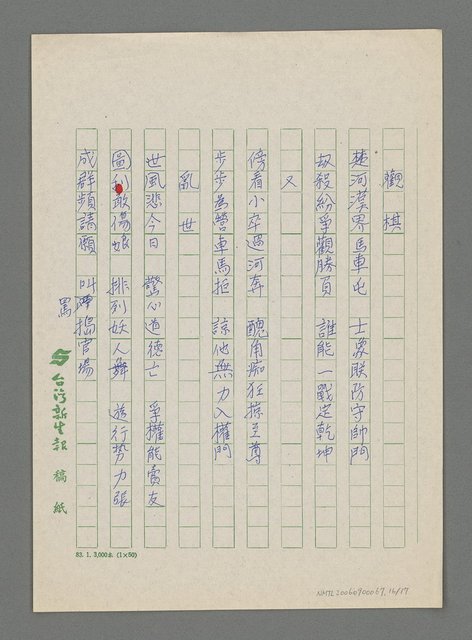 觀棋
楚河漢界馬車屯 士象联防守帥門
劫殺紛爭觀勝負 誰能一戰定乾坤
又
傍看小卒過河奔 醜角痴狂掠至尊
步步為營車馬拒 諒他無力入權門
亂世
世風悲今日 驚心道德亡 爭權能賣友
圖利敢傷娘 排列妖人舞 遊行势力張
成群頻請願 叫罵搗官場
台灣新生報 稿紙
83. 1. 3,000本. (1×50)
NMTL20060900067.16/17